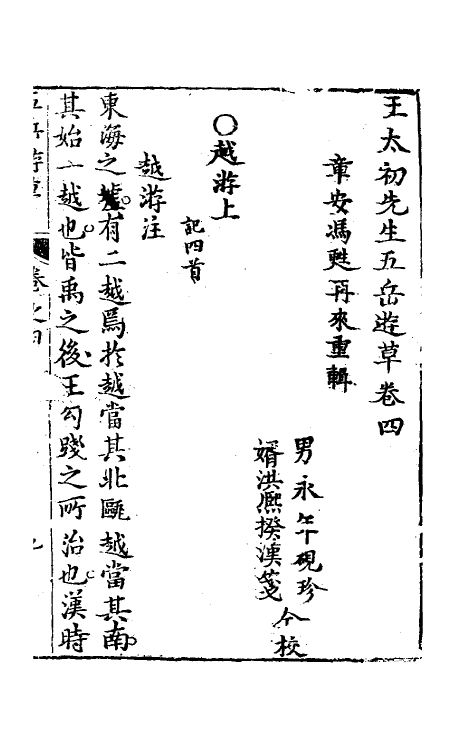 王太初先生五岳遊草卷四
章安馮甦再來重輯
男永年硯珍
婿洪熈揆漢箋
仝校
〇越游上
記四首
越游注
東海之墟有二越焉於越當其北甌越當其南
其始一越也皆禹之後王勾踐之所治也漢時
五岳游草
卷之四